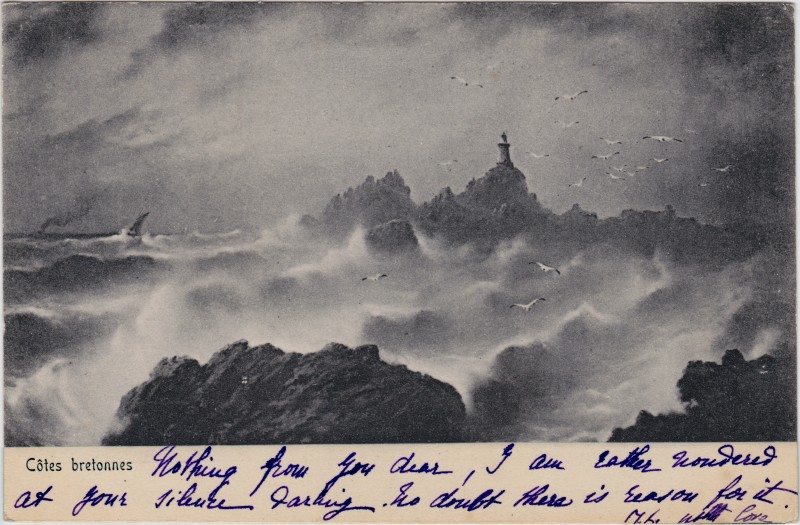 Côtes bretonnes
Nothing from you dear, I am rather wondered
at your silence darling. No doubt there is reason for it.
with love